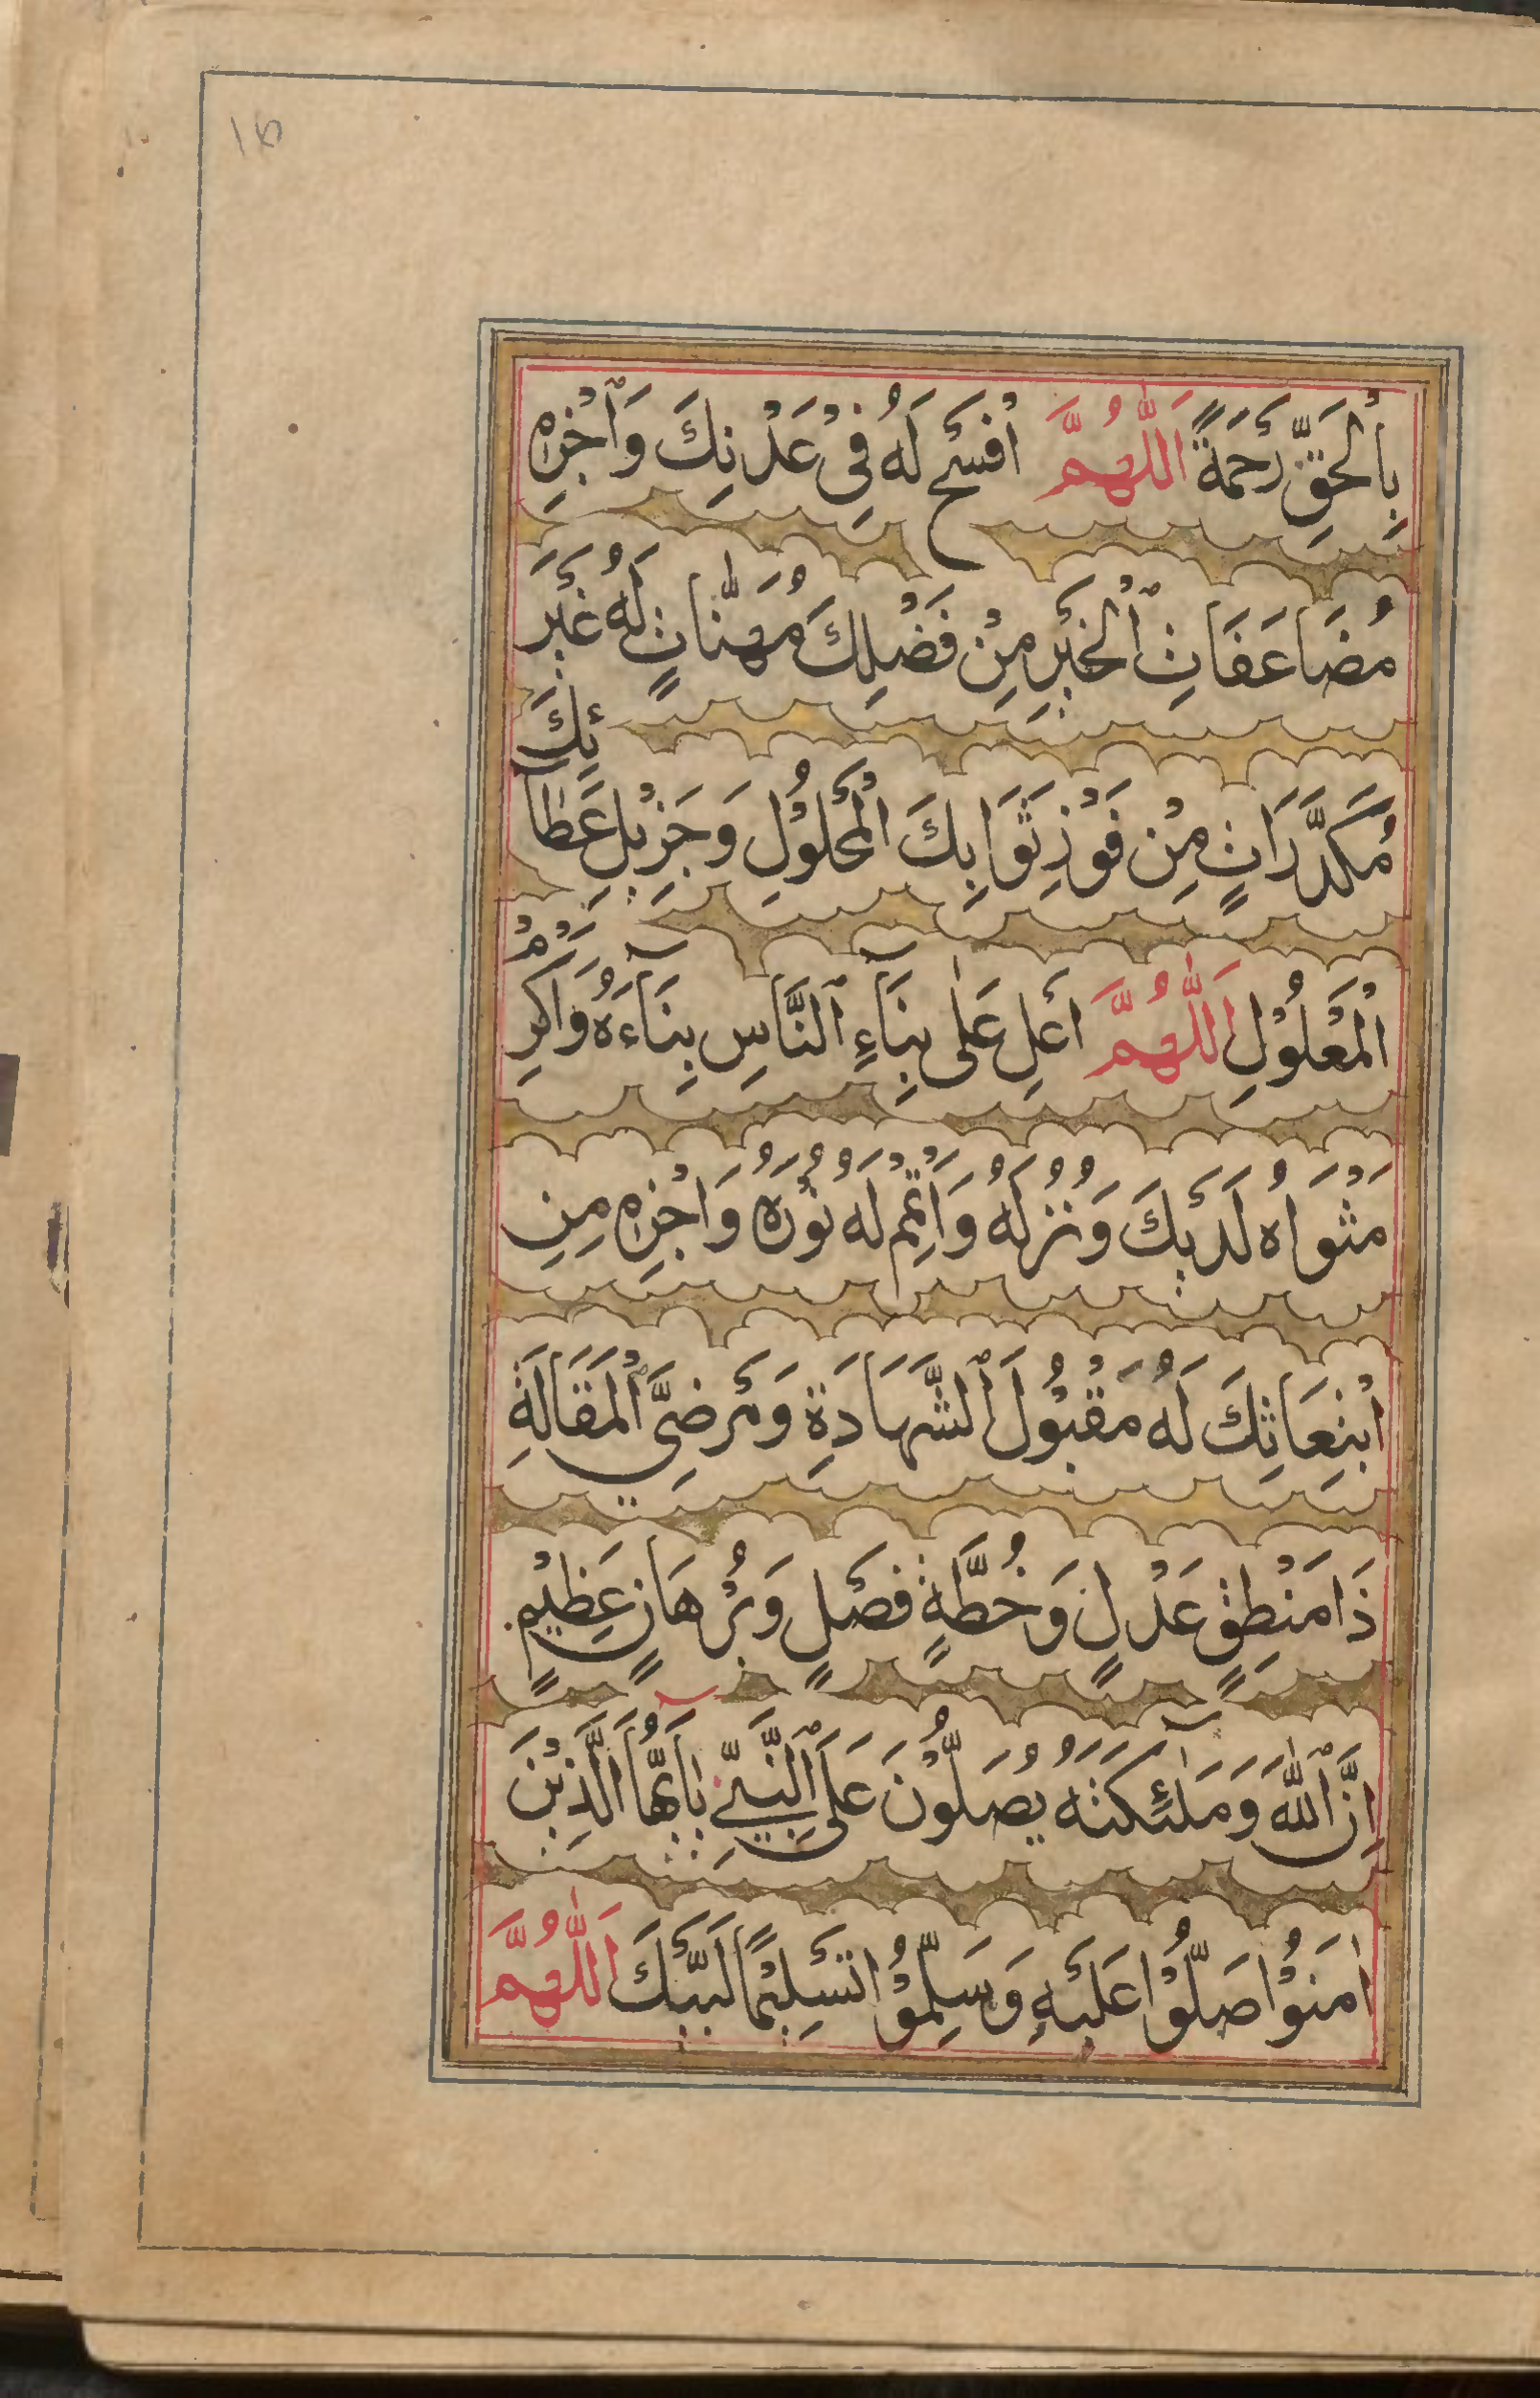 ١٥
بِالْحَقِّ رَحْمَةً اَللّٰهُمَّ افْسَحْ لَهُ فِيْ عَدْنِكَ وَاجْزِهِ
مُضَاعَفَاتِ الْخَيْرِ مِنْ فَضْلِكَ مُهَنَّاتٍ لَهُ غَيْرَ
مُكَدَّرَاتٍ مِنْ فَوْزِ ثَوَابِكَ الْمَحْلُوْلِ وَجَزِيْلِ عَطَآئِكَ
الْمَعْلُوْلِ اَللّٰهُمَّ اَعْلِ عَلٰى بِنَآءِ النَّاسِ بِنَآءَهُ وَاَكْرِمْ
مَثْوَاهُ لَدَيْكَ وَنُزُلَهُ وَاَتْمِمْ لَهُ نُوْرَهُ وَاجْزِهِ مِنِ
ابْتِعَاثِكَ لَهُ مَقْبُوْلَ الشَّهَادَةِ وَمَرْضِيَّ الْمَقَالَةِ
ذَا مَنْطِقٍ عَدْلٍ وَخُطَّةٍ فَصْلٍ وَبُرْهَانٍ عَظِيْمٍ
اِنَّ اللّٰهَ وَمَلٰٓئِكَتَهُ يُصَلُّوْنَ عَلَى النَّبِيِّ يٰٓاَيُّهَا الَّذِيْنَ
اٰمَنُوْا صَلُّوْا عَلَيْهِ وَسَلِّمُوْا تَسْلِيْمًا لَبَّيْكَ اَللّٰهُمَّ